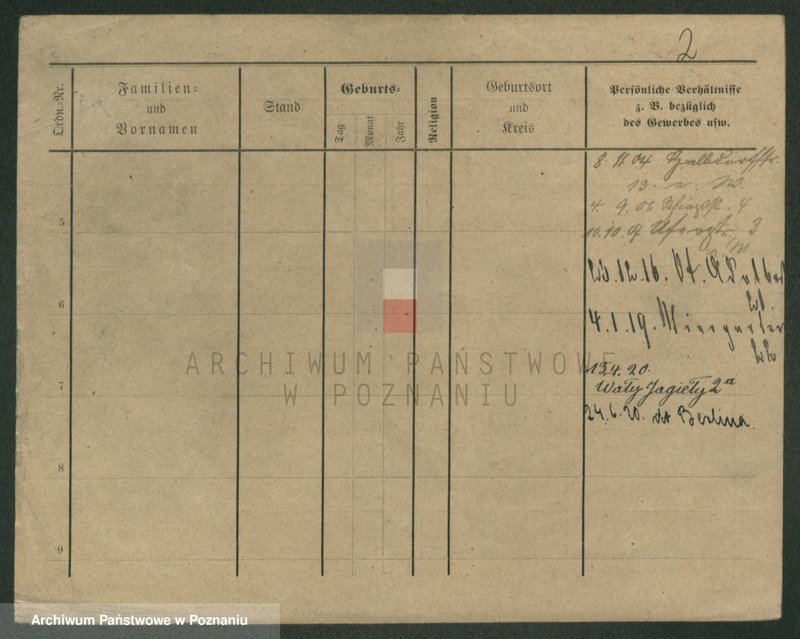 2
Ordn.-Nr.
Familien-
und
Vornamen
Stand
Geburts-
Tag
Monat
Jahr
Religion
Geburtsort
und
Kreis
Persönliche Verhältnisse
z. B. bezüglich
des Gewerbes usw.
8. 11. 04
13.
5
4. 9. 06
10. 10. 07
23. 12. 16.
6
4. 1. 19.
ARCHIWUM PAŃSTWOWE
W POZNANIU
13.4.20.
7
Wały Jagiełły 2a
24.6.20. do Berlina.
8
9
Archiwum Państwowe w Poznaniu